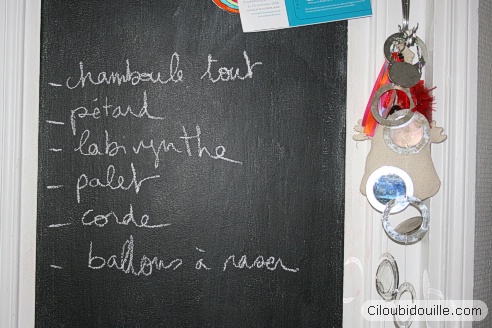 - chamboule tout
- pétard
- labyrynthe
- palet
- corde
- ballons à raser
Ciloubidouille.com